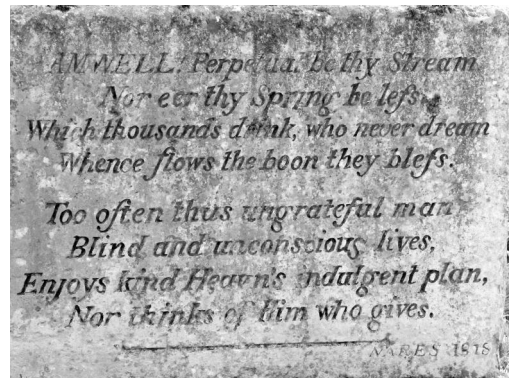 AMWELL! Perpetual be thy Stream
Nor e'er thy Spring be leſs,
Which thousands drink, who never dream
Whence flows the boon they bleſs.
Too often thus ungrateful man
Blind and unconscious lives,
Enjoys kind Heav'n's indulgent plan,
Nor thinks of Him who gives.
NARES 1818